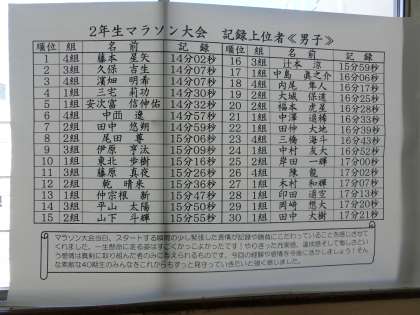 2年生マラソン大会 記録上位者≪男子≫
順位 組 名前 記録
1 4組 藤本 星矢 14分02秒
2 2組 久保 吉生 14分07秒
3 4組 濱畑 明希
4 1組 三宅 莉功 14分30秒
5 1組 安次富 信伸佑 14分32秒
6 4組 中 遼 14分57秒
7 2組 田中 悠朔 14分59秒
8 2組 尾田 尊 15分06秒
9 3組 伊原 亨汰
10 1組 東北 歩樹 15分16秒
11 3組 藤原 真夜 15分26秒
12 2組 乾 晴来 15分36秒
13 1組 仲宗根 新
14 3組 平山 太陽 15分50秒
15 2組 山下 斗輝 15分55秒
16 3組 辻本 涼 15分59秒
17 1組 中島 真之介 16分06秒
18 4組 内尾 隼人 16分17秒
19 2組 大城 保達 16分25秒
20 2組 福本 虎星 16分28秒
21 1組 中澤 16分33秒
22 1組 田仲 大地 16分39秒
23 4組 三橋 海斗 16分43秒
24 1組 中村 友太 16分52秒
25 2組 岸田 一輝 17分00秒
26 4組 陳 龍 17分02秒
27 1組 木村 和輝 17分05秒
28 4組 印田 17分07秒
29 1組 岡崎 悠大 17分20秒
30 1組 田中 大樹 17分21秒
マラソン大会当日、スタートする瞬間の少し緊張した表情が記録や勝負にこだわっていることを感じさせて
くれました。一生懸命に走る姿はすごくかっこよかったです！やりきった充実感、達成感そして悔しさとい
う感情は真剣に取り組んだ者のみに与えられるものです。今回の経験や感情を今後に活かしましょう！そん
な素敵な40期生のみんなをこれからもずっと見守っていきたいと強く感じました。